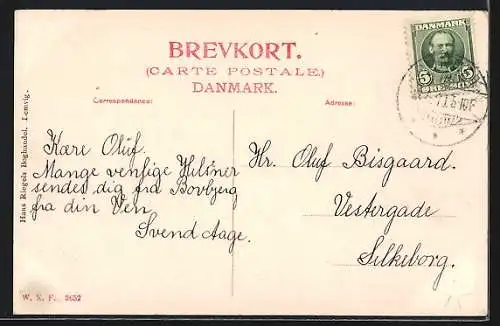 BREVKORT.
(CARTE POSTALE.)
DANMARK.
Correspondance:
Adresse:
DANMARK
5 5
Kære Oluf.
Mange venlige Hilsner
sendes dig fra Bovbjerg
fra din Ven
Svend Aage.
Hr. Oluf Bisgaard.
Vestergade
Silkeborg.
Hans Riegels Boghandel, Lemvig.
W. K. F. 3652